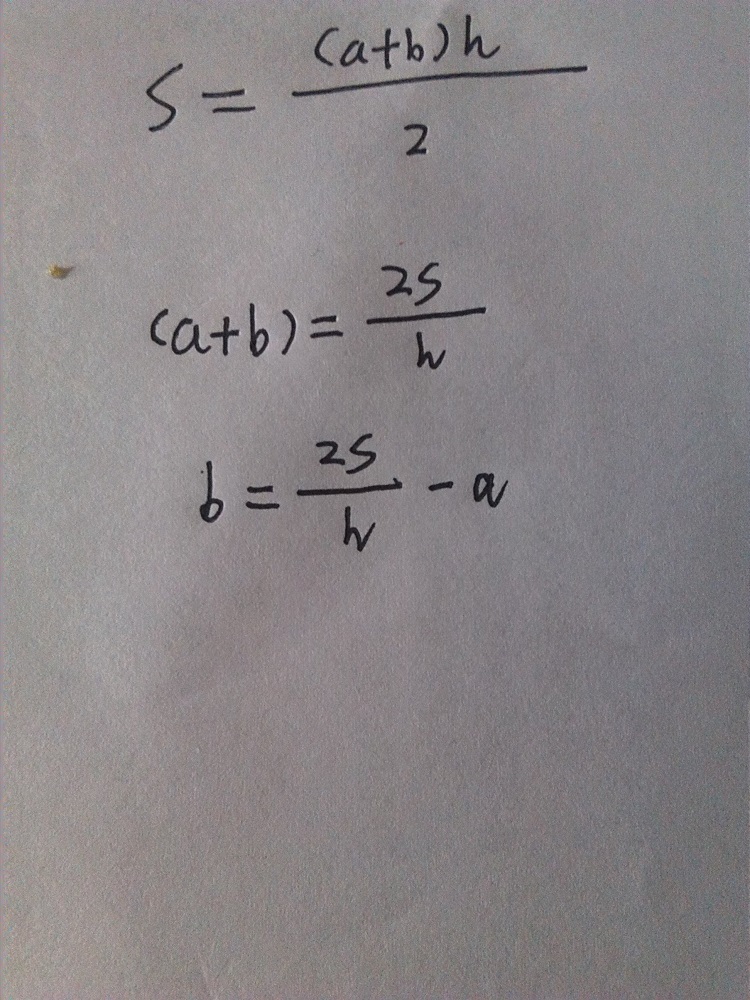 S = (a+b)h / 2
(a+b) = 2S / h
b = 2S / h - a